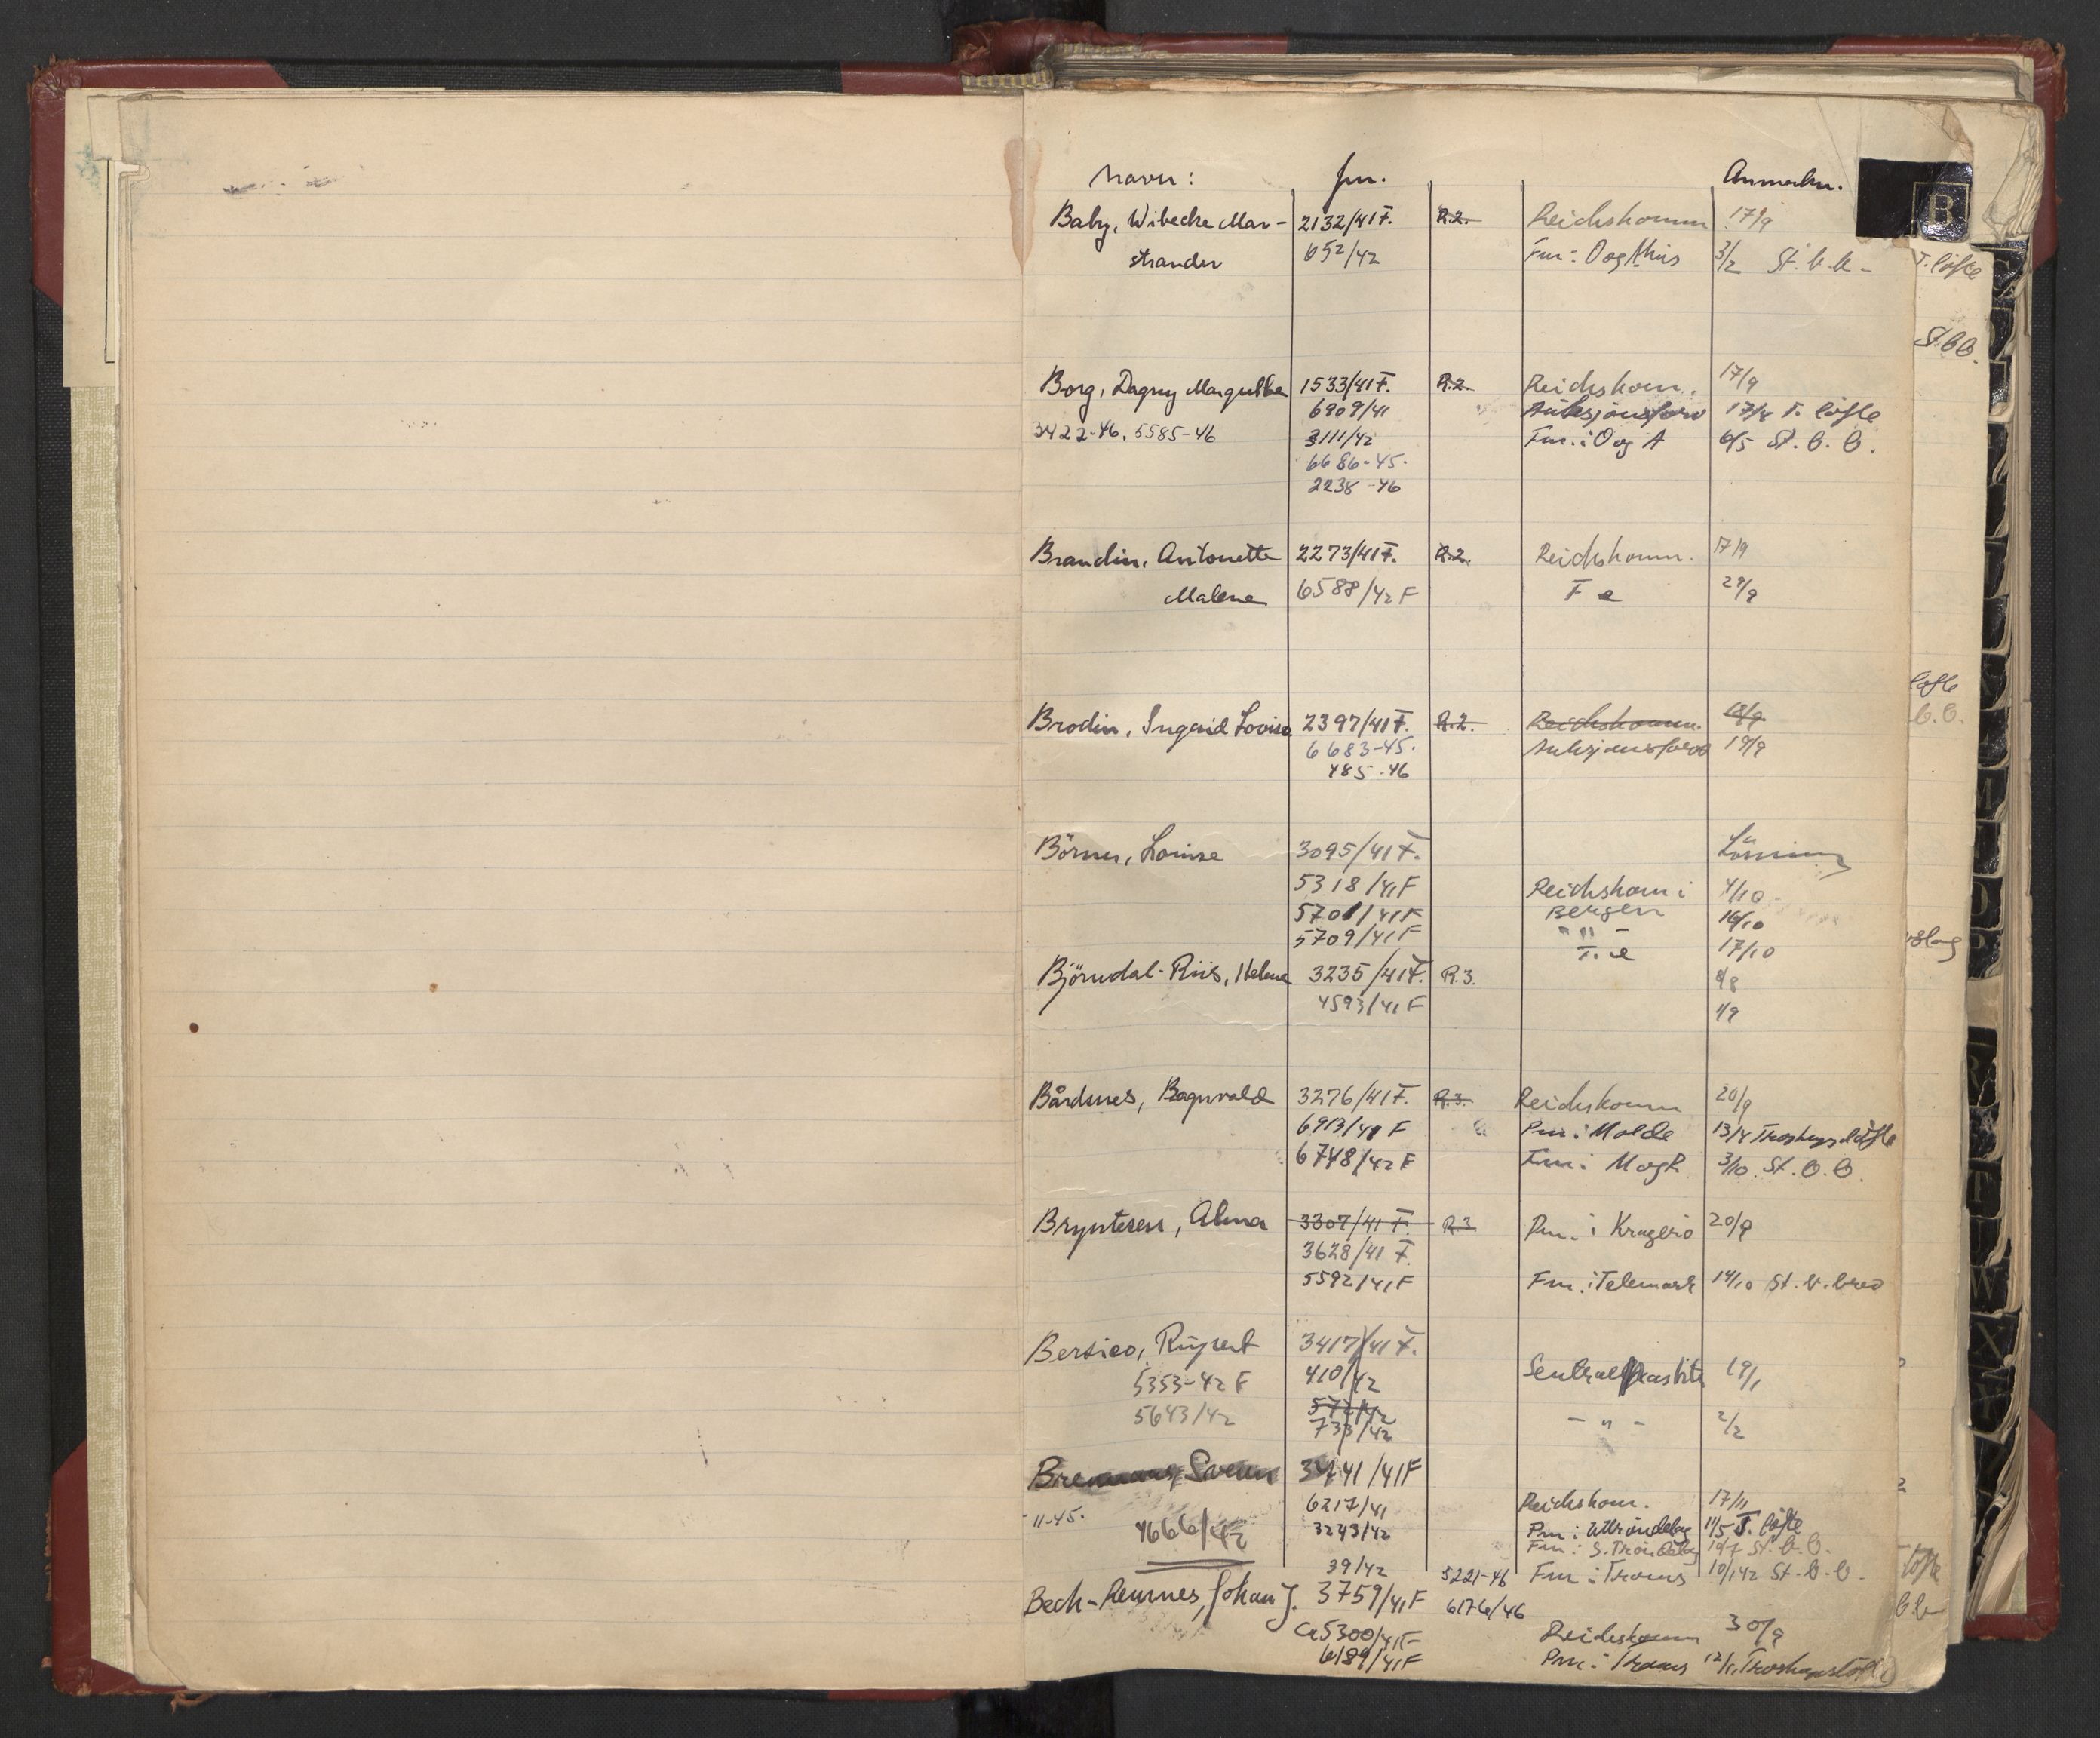 Navn: Jnr. Anmerkn.
B
Baby, Wibecke Mar- 2132/41 F. R.2. Reichskomm 17/9
strander 652/42 Fm: O og Ahus 3/2 St. b. b. -
T. löfte
St b B.
Borg, Dagny Margrethe 1533/41 F. R.2. Reichskom. 17/9
6909/41 Auksjonsforv 17/4 T. löfte
3422-46. 5585-46 3111/42 Fm. i O og A 6/5 St. b. b.
6686-45.
2238-46
Brandin, Antonette 2273/41 F. R.2. Reichskomm. 17/9
Malene 6588/42 F F e 29/9
löfte
b. b.
Brodin, Ingrid Lovise 2397/41 F. R.2. Reichskomm. 18/9
6683-45. Auksjonsforv 19/9
485-46
Börner, Louise 3095/41 F.
5318/41 F Reichskom i 4/10
5701/41 F Bergen 16/10
5709/41 F F. e 17/10
Björndal-Riis, Helene 3235/41 F. R.3. 9/8
4593/41 F 1/9
Bårdsnes, Ragnvald 3276/41 F. R.3. Reichskomm 20/9
6913/41 F Pm i Molde 13/4 Troskapslöfte
6748/42 F Fm i M og R 3/10. St. b. b.
Bryntesen, Alma 3307/41 F. R.3 Pm. i Kragerö 20/9
3628/41 F.
5592/41 F Fm. i Telemark 14/10 St. b. brev
Bersico, Rupert 3417/41 F.
5353-42 F 410/42 Sentralpasskt 19/1
572/42
5643/42 733/42 - " - 2/2
3441/41 F
6217/41 Reichskom. 17/11
-11-45. 4666/42 3243/42 Pm i U.Tröndelag 11/5 T. löfte
Fm: S. Tröndelag 10/7 St. b. b.
39/42 5221-46 Fm i Troms 10/1 42 St. b. b. -
Bech-Reumes, Johan J. 3759/41 F 6176/46
Ca 5300/41 F Reichskomm 30/9
6189/41 F Pm i Troms 12/11 Troskapslöfte